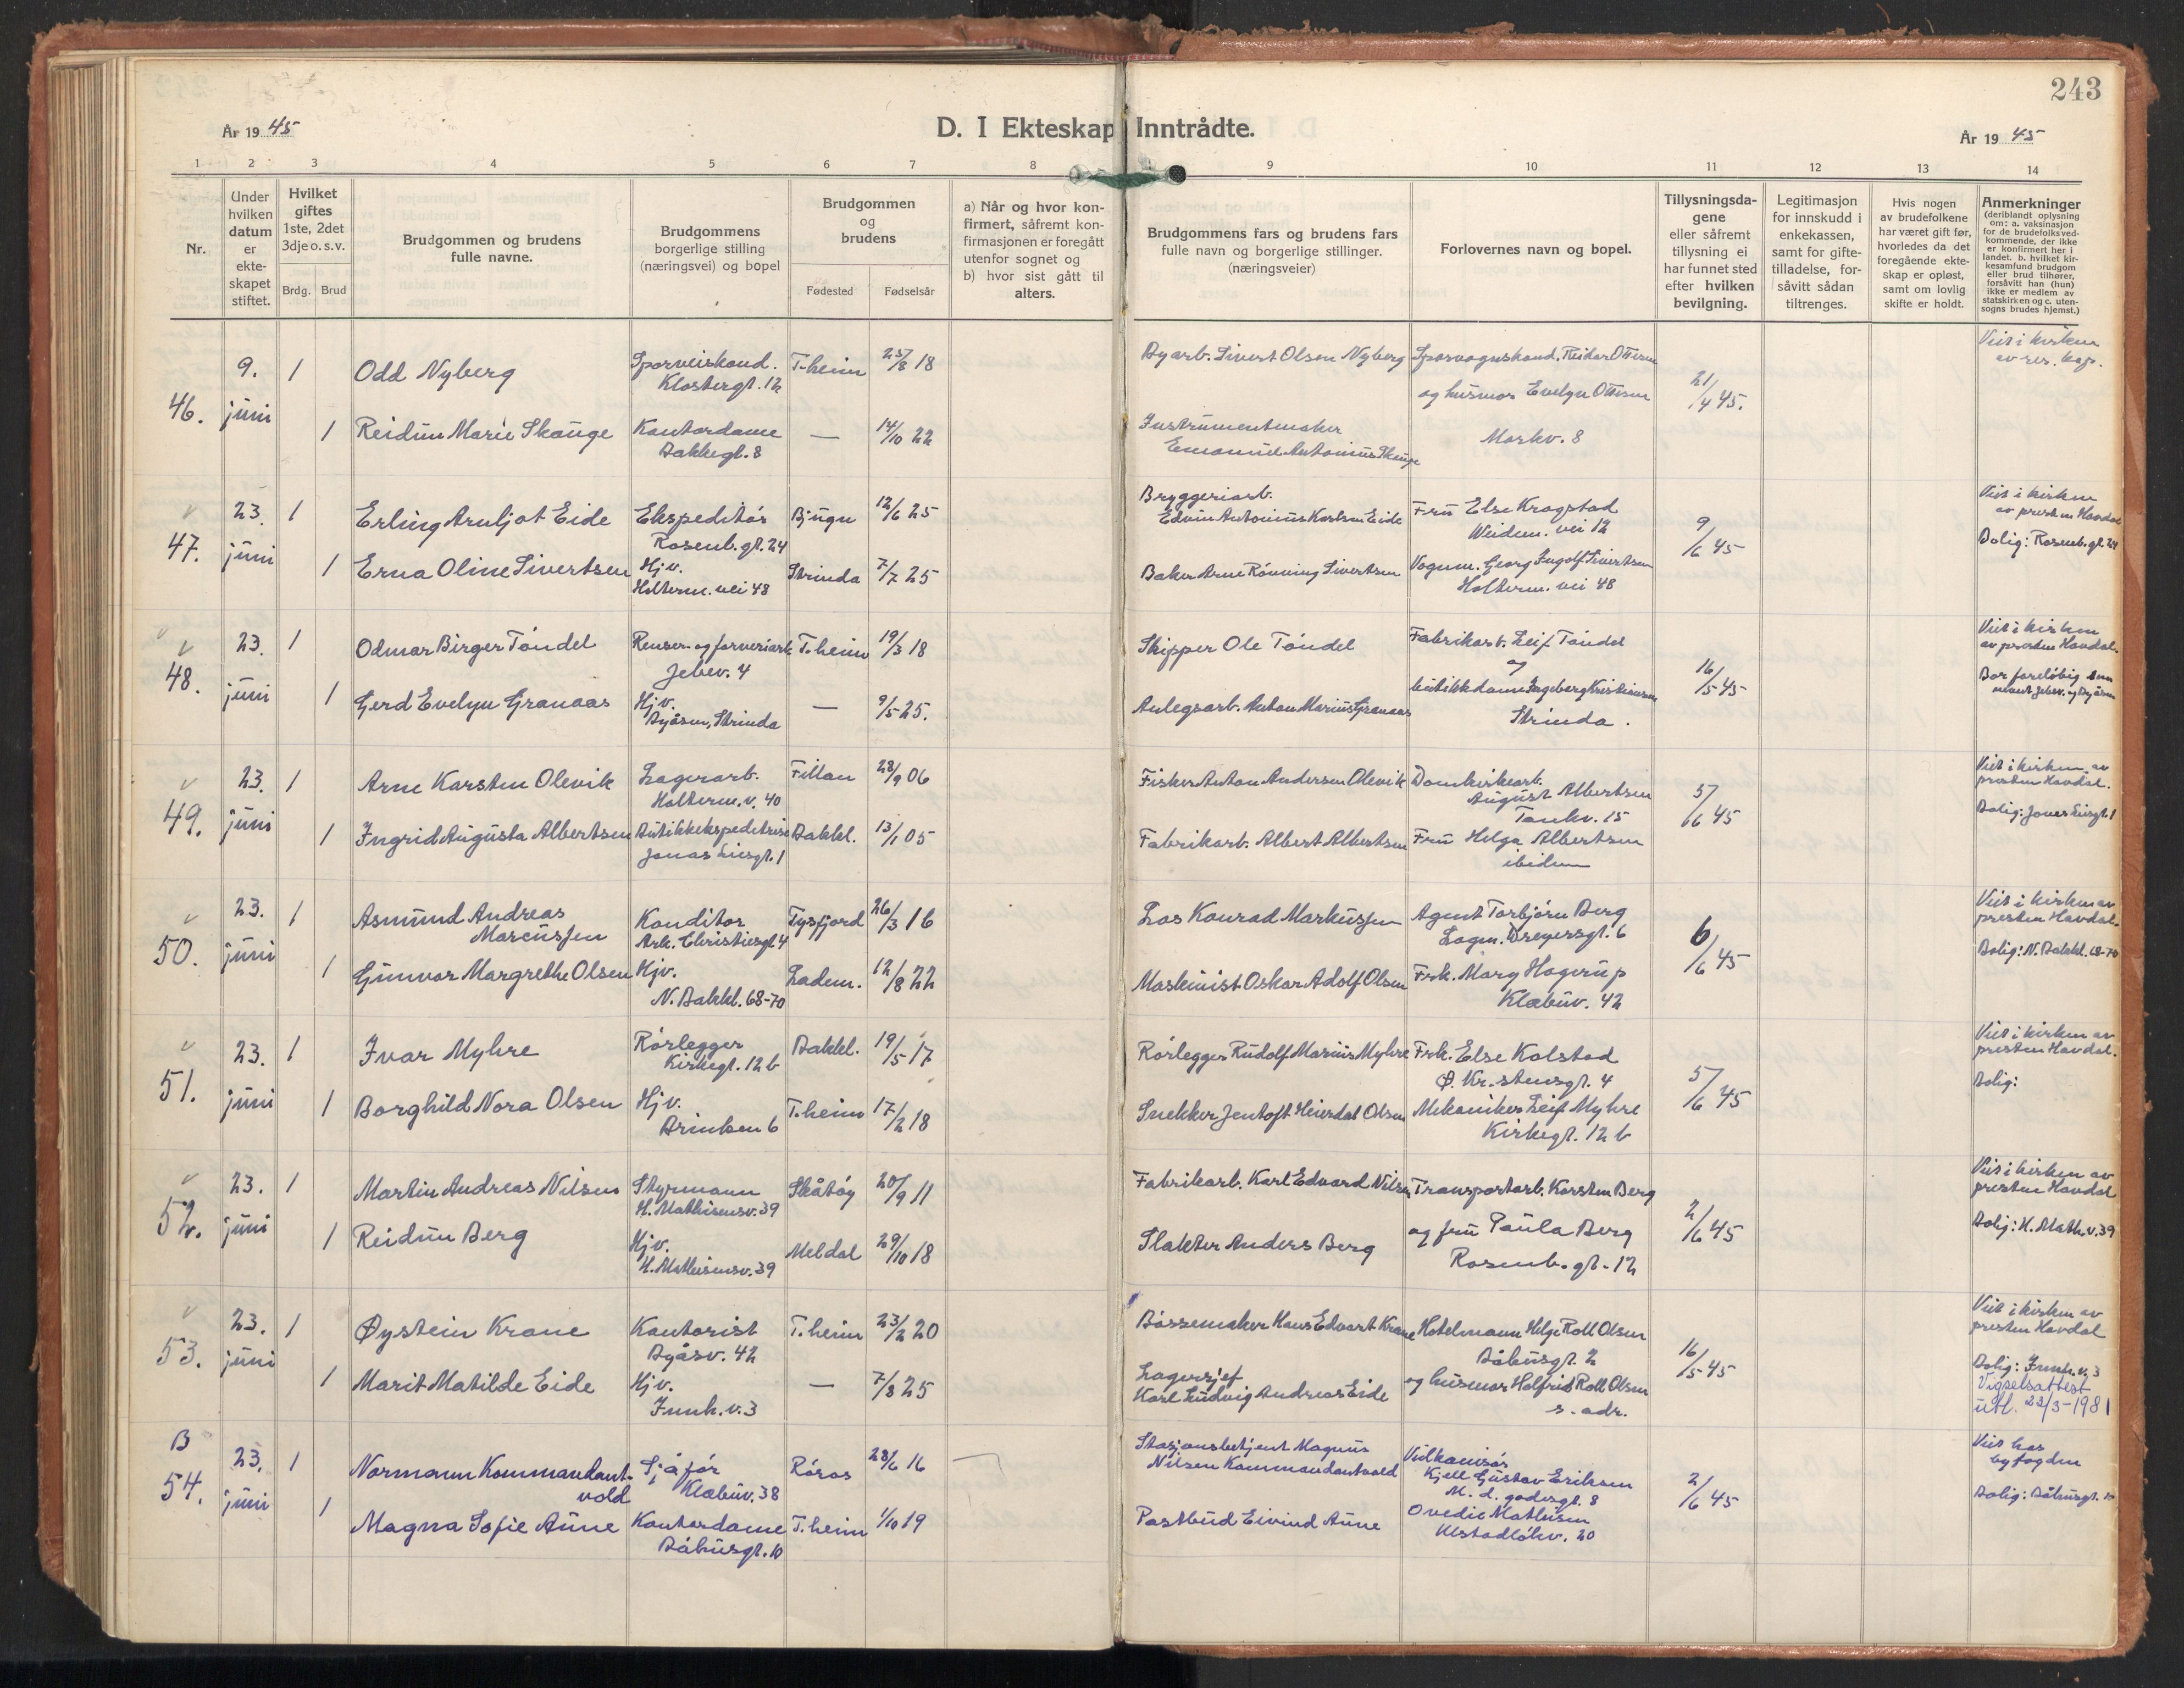 243
År 1945
D. I Ekteskap Inntrådte.
År 1945
1 2 3 4 5 6 7 8 9 10 11 12 13 14
Nr.
Under hvilken datum er ekte-skapet stiftet.
Hvilket giftes 1ste, 2det 3dje o. s. v.
Brdg. Brud
Brudgommen og brudens fulle navne.
Brudgommens borgerlige stilling (næringsvei) og bopel
Brudgommen og brudens
Fødested Fødselsår
a) Når og hvor kon-firmert, såfremt kon-firmasjonen er foregått utenfor sognet og b) hvor sist gått til alters.
Brudgommens fars og brudens fars fulle navn og borgerlige stillinger. (næringsveier)
Forlovernes navn og bopel.
Tillysningsda-gene eller såfremt tillysning ei har funnet sted efter hvilken bevilgning.
Legitimasjon for innskudd i enkekassen, samt for gifte-tilladelse, for-såvitt sådan tiltrenges.
Hvis nogen av brudefolkene har været gift før, hvorledes da det foregående ekte-skap er opløst, samt om lovlig skifte er holdt.
Anmerkninger (deriblandt oplysning om: a. vaksinasjon for de brudefolksved-kommende, der ikke er konfirmert her i landet. b. hvilket kir-kesamfund brudgom eller brud tilhører, forsåvitt han (hun) ikke er medlem av statskirken og c. uten-sogns brudes hjemst.)
46. 9. juni
1 Odd Nyberg Sporveiskond. Klostergt. 12 T.heim 25/8 18
1 Reidun Marie Skauge Kontordame Bakkegt. 8 — 14/10 22
Byarb. Sivert Olsen Nyberg
Instrumentmaker Emanuel Antonius Skauge
Sporvognskond. Reidar Ottesen og husmor Evelyn Ottesen
Markv. 8
21/4 45.
Viet i kirken av res. kap.
47. 23. juni
1 Erling Arnljot Eide Ekspeditør Rosenb. gt. 24 Bjugn 12/6 25
1 Erna Oline Sivertsen Hjv. Holterm. vei 48 Strinda 7/7 25
Bryggeriarb. Edvin Antonius Karlsen Eide
Baker Arne Rønning Sivertsen
Fru Else Krogstad Weidem. vei 12
Vognm. Georg Ingolf Sivertsen Holterm. vei 48
9/6 45
Viet i kirken av presten Havdal
Bolig: Rosenb. gt. 24
48. 23. juni
1 Odmar Birger Tøndel Renser- og farveriarb. Jebev. 4 T.heim 19/3 18
1 Gerd Evelyn Granaas Hjv. Byåsen, Strinda — 9/5 25.
Skipper Ole Tøndel
Anlegsarb. Anton Marius Granaas
Fabrikarb. Leif Tøndel og
butikkdame Ingeborg Kristiansen Strinda.
16/5 45
Viet i kirken av presten Havdal.
Bor foreløbig
49. 23. juni
1 Arne Karsten Olevik Lagerarb. Holterm. v. 40 Fillan 28/9 06
1 Ingrid Augusta Albertsen Butikkekspeditrise Jonas Liesgt. 1 Bakkl. 13/1 05
Fisker Anton Andersen Olevik
Fabrikarb. Albert Albertsen
Domkirkearb. August Albertsen Tonkv. 15
Fru Helga Albertsen ibidem
5/6 45
Viet i kirken av presten Havdal.
Bolig: Jonas Liesgt. 1
50. 23. juni
1 Asmund Andreas Marcussen Konditor Ark. Christiesgt. 4 Tysfjord 26/3 16
1 Gunvor Margrethe Olsen Hjv. N. Bakkl. 68-70 Ladem. 12/8 22
Los Konrad Markussen
Maskinist Oskar Adolf Olsen
Agent Torbjørn Berg Lagm. Dreyersgt. 6
Frk. Mary Hagerup Klæbuv. 42
6/6 45
Viet i kirken av presten Havdal.
Bolig: N. Bakkl. 68-70
51. 23. juni
1 Ivar Myhre Rørlegger Kirkegt. 12 b Bakkl. 19/5 17
1 Borghild Nora Olsen Hjv. Brinken 6 T.heim 17/2 18
Rørlegger Rudolf Marius Myhre
Snekker Jentoft Heierdal Olsen
Frk. Else Kolstad Ø. Kr.stensgt. 4
Mekaniker Leif Myhre Kirkegt. 12 b
5/6 45
Viet i kirken av presten Havdal.
Bolig:
52. 23. juni
1 Martin Andreas Nilsen Styrmann H. Mathisensv. 39 Skåtøy 20/9 11
1 Reidun Berg Hjv. H. Mathisensv. 39 Meldal 29/10 18
Fabrikarb. Karl Edvard Nilsen
Slakter Anders Berg
Transportarb. Karsten Berg
og fru Paula Berg Rosenb. gt. 12
2/6 45
Viet i kirken av presten Havdal
Bolig: H. Math.v. 39
53. 23. juni
1 Øystein Krane Kontorist Byåsv. 42 T.heim 23/2 20
1 Marit Matilde Eide Hjv. Innh. v. 3 — 7/8 25
Bøssemaker Hans Edvart Krane
Lagersjef Karl Ludvig Andreas Eide
Hotelmann Helge Roll Olsen Båhusgt. 2
og husmor Halfrid Roll Olsen s. adr.
16/5 45
Viet i kirken av presten Havdal
Bolig: Innh. v. 3
Vigselsattest utl. 23/3-1981
B
54. 23. juni
1 Normann Kommandantvold Sjåfør Klæbuv. 38 Røros 28/6 16
1 Magna Sofie Aune Kontordame Båhusgt. 10 T.heim 1/10 19
Stasjonsbetjent Magnus Nilsen Kommandantvold
Postbud Eivind Aune
Vulkanisør Kjell Gustav Eriksen M. d. godesgt. 8
Ovedie Mathisen Ulstadløkv. 20
2/6 45
Viet hos byfogden
Bolig: Båhusgt. 10